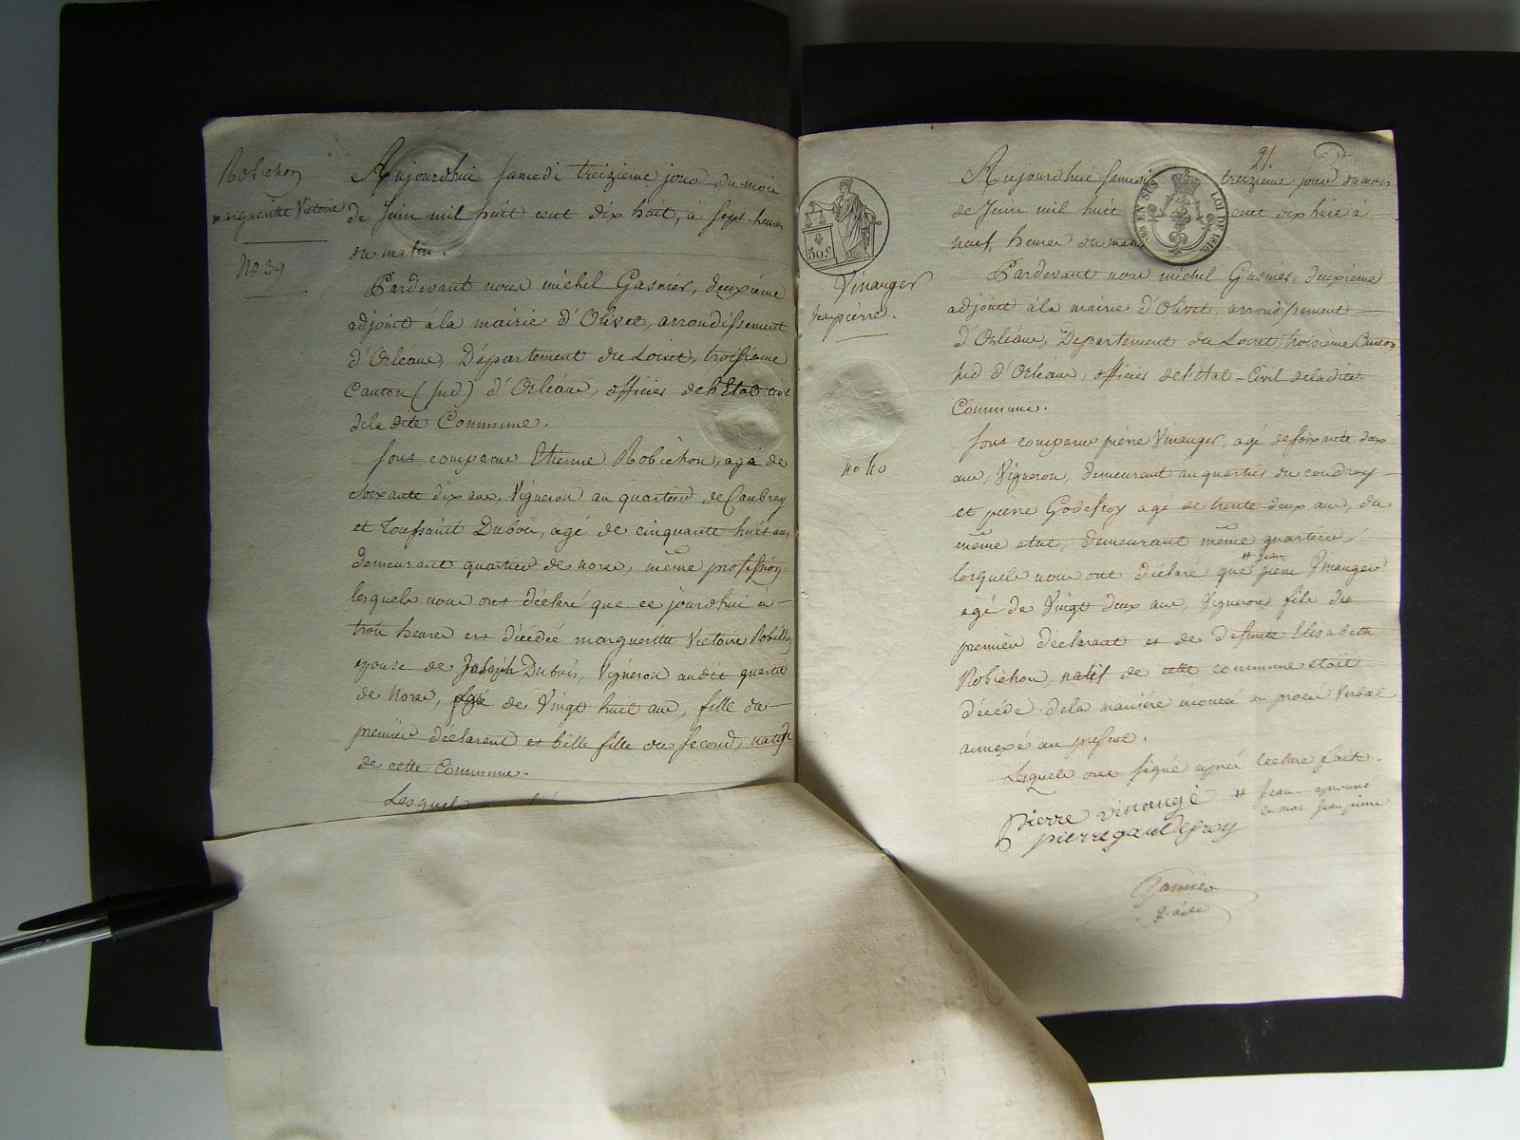 Robichon
marguerite Victoire
No. 39
Aujourdhui samedi treizieme jour du mois
de Juin mil huit cent dix huit, à sept heures
du matin.
Pardevant nous michel Gasnier, deuxième
adjoint à la mairie d'Olivet, arrondissement
d'Orléans, Département du Loiret, troisieme
Canton (sud) d'Orléans, officier de l'Etat civil
de la dite Commune.
Sont comparus Etienne Robichon, agé de
soixante dix ans, Vigneron au quartier de
et Toussaint Dubois, agé de cinquante huit ans,
demeurant quartier de nore, même profession
lesquels nous ont déclaré que ce jourdhui à
trois heures est décédée marguerite Victoire Robichon
epouse de Joseph Dubois, Vigneron audit quartier
de Nore, agée de Vingt huit ans, fille du
premier déclarant et belle fille du second, native
de cette Commune.
Lesquels
21.
Vinauger
jean pierre.
no 40
30 C
LOI DE 1816
Aujourdhui samedi treizieme jour du mois
de Juin mil huit cent dix huit à
neuf heures du matin
Pardevant nous michel Gasnier, deuxieme
adjoint à la mairie d'Olivet, arrondissement
d'Orléans, Departement du Loiret troisieme Canton
sud d'Orleans, officier de l'Etat-Civil de la dite
Commune.
Sont comparus pierre Vinauger, agé de soixante deux
ans, Vigneron, demeurant au quartier du coudray
et pierre Godefroy agé de trente deux ans, du
même etat, demeurant même quartier,
lesquels nous ont déclaré que # jean pierre Vinauger
agé de Vingt deux ans, Vigneron fils du
premier déclarant et de defunte Elisabeth
Robichon, natif de cette commune etoit
décédé de la manière énoncé en proces Verbal
annexé au present.
Lesquels ont signé après lecture faite.
pierre vinaugé # jean aprouvé
pierre gaudefroy
Gasnier